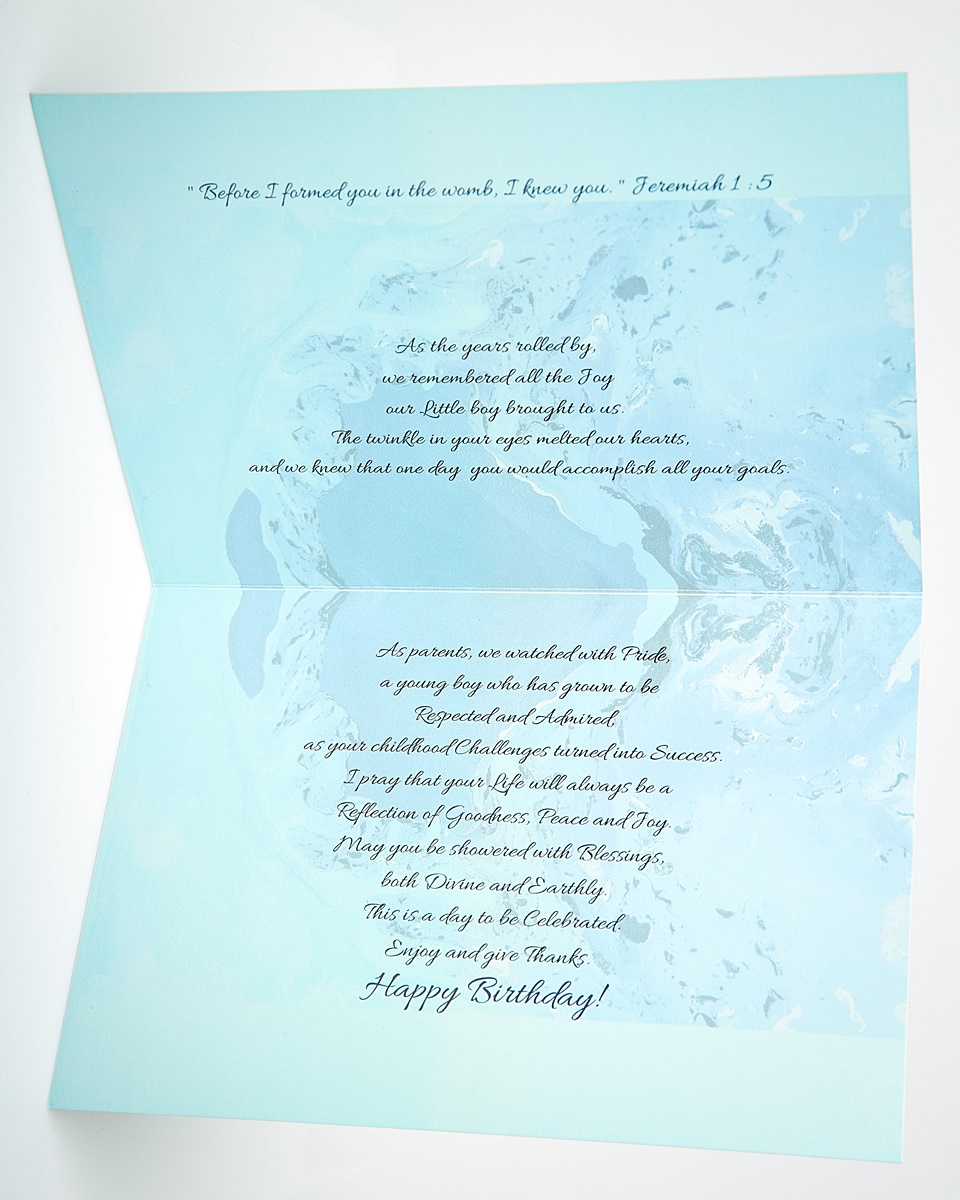 " Before I formed you in the womb, I knew you. " Jeremiah 1 : 5
As the years rolled by,
we remembered all the Joy
our Little boy brought to us.
The twinkle in your eyes melted our hearts,
and we knew that one day you would accomplish all your goals.
As parents, we watched with Pride,
a young boy who has grown to be
Respected and Admired,
as your childhood Challenges turned into Success.
I pray that your Life will always be a
Reflection of Goodness, Peace and Joy.
May you be showered with Blessings,
both Divine and Earthly.
This is a day to be Celebrated.
Enjoy and give Thanks.
Happy Birthday!